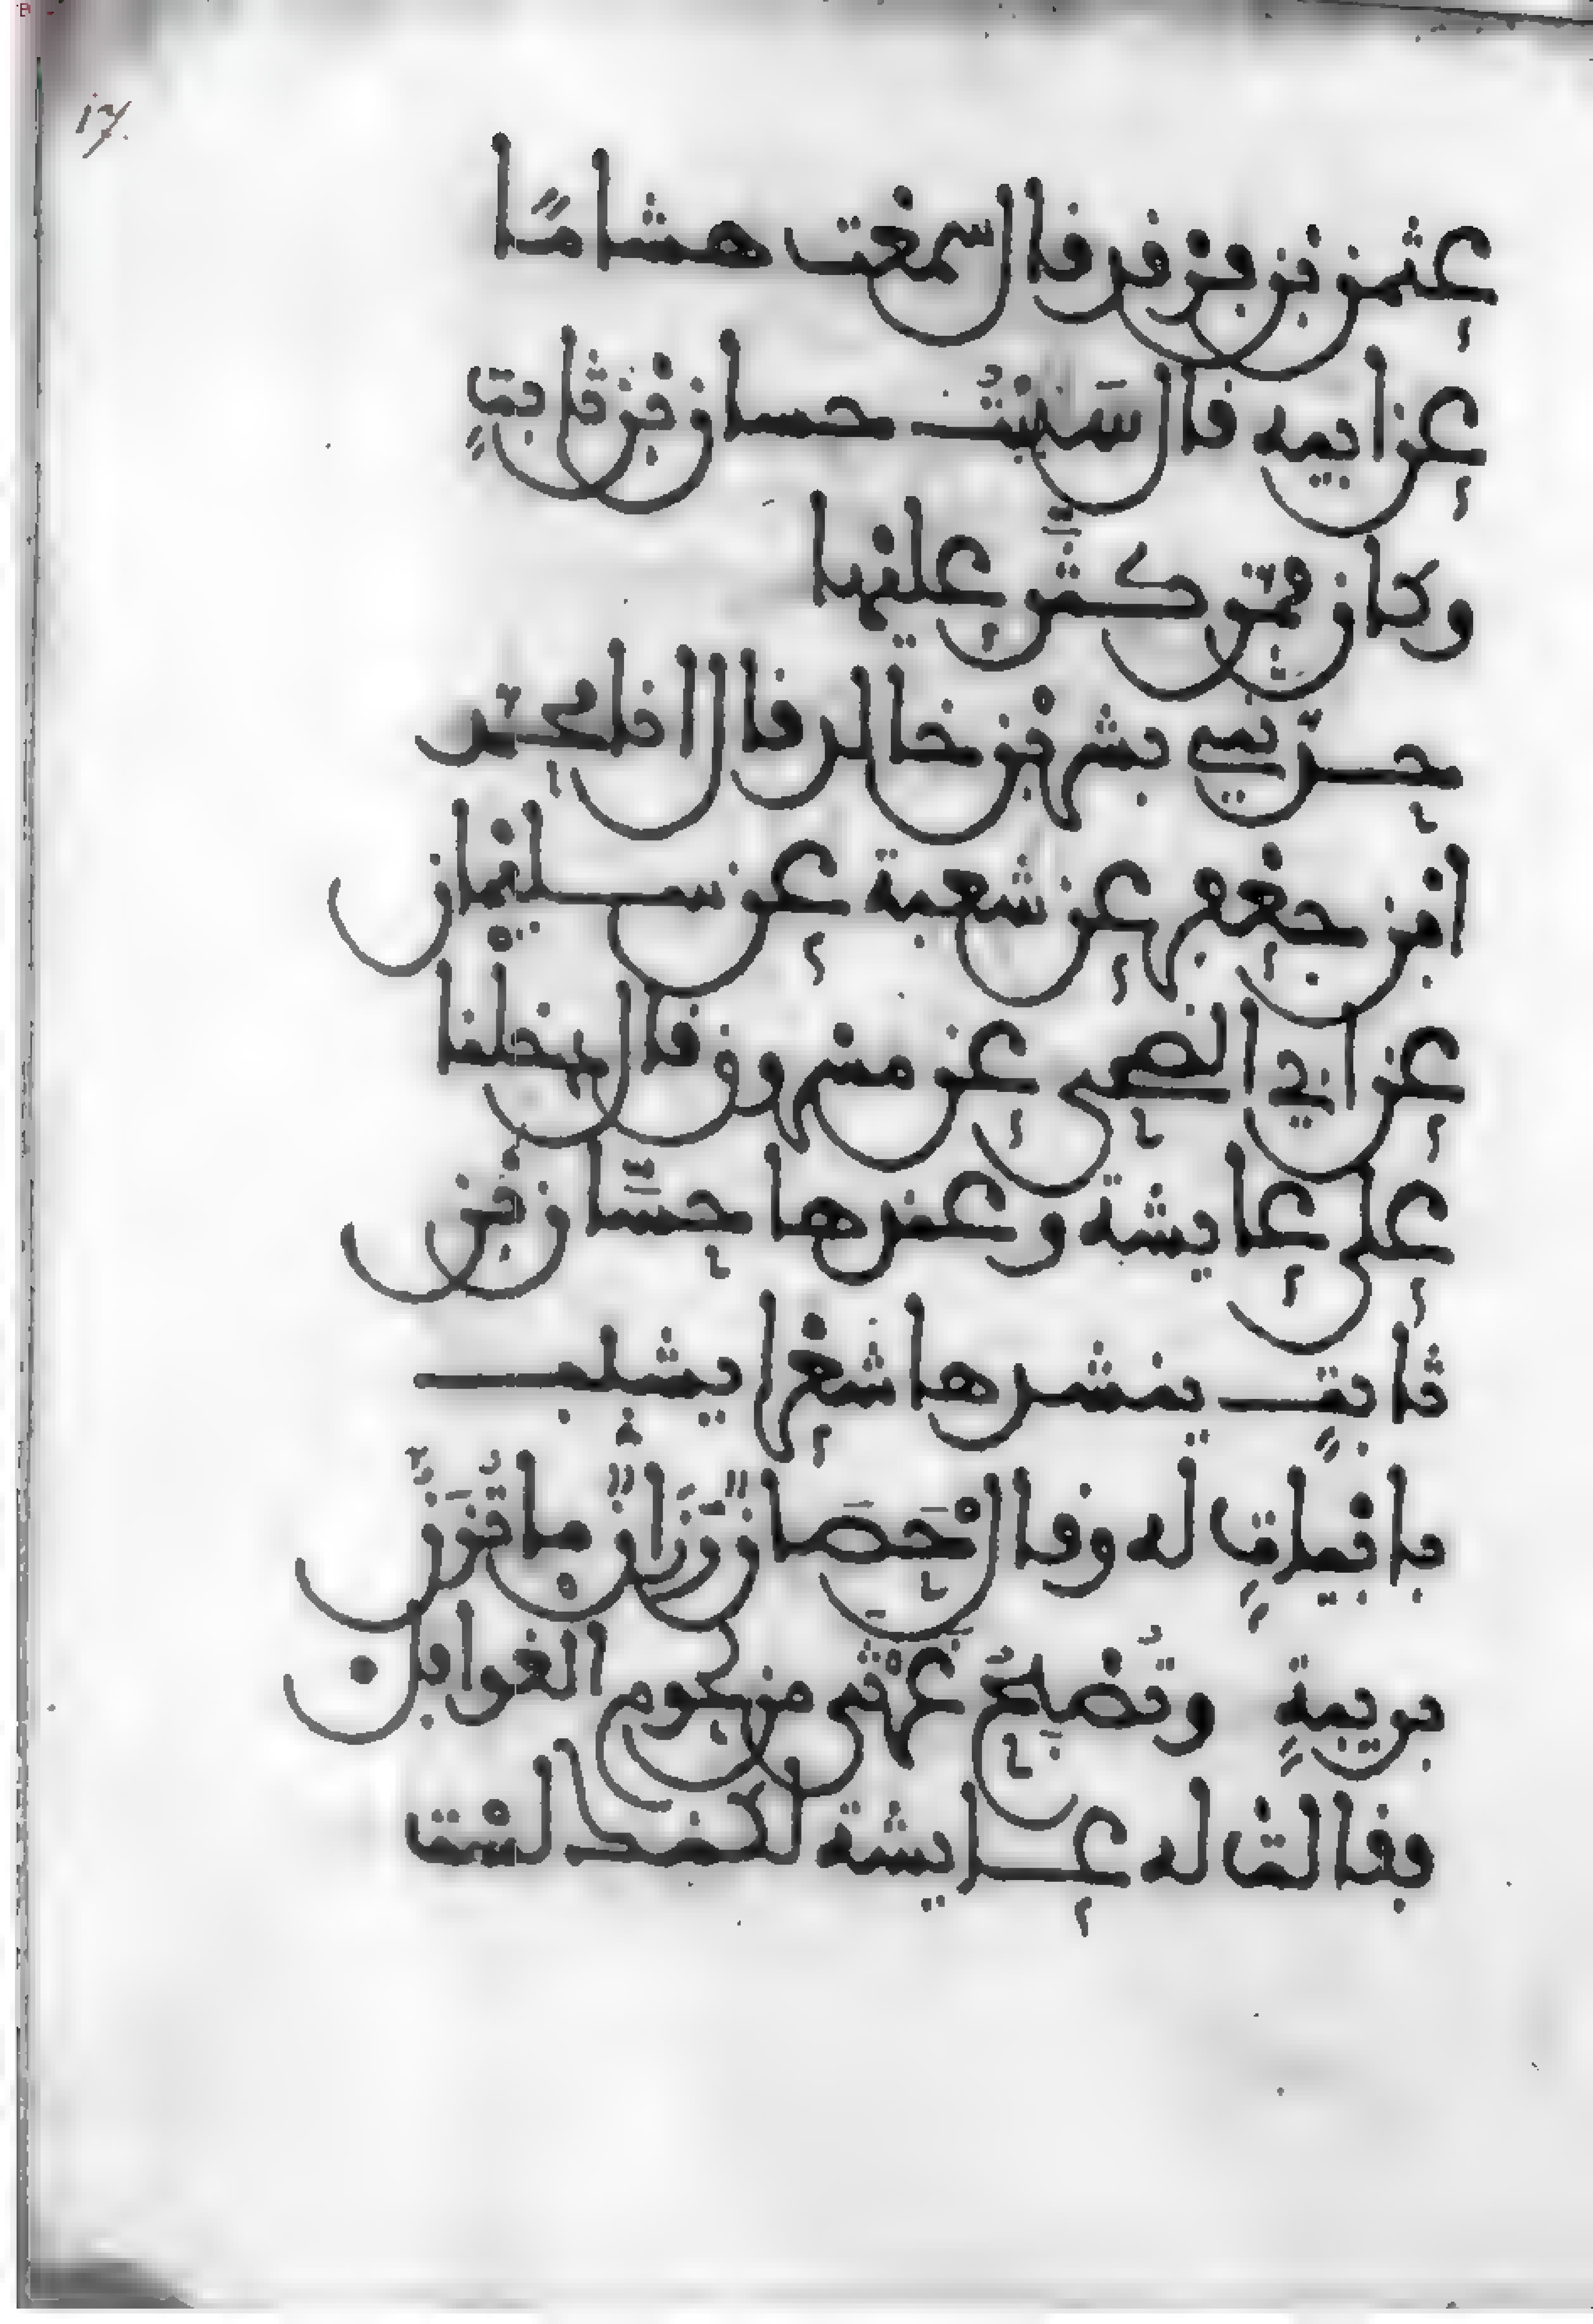 17.
عثمن بن فرقد قال سمعت هشامًا
عن ابيه قال سَبَبْتُ حسان بْن ثابتٍ
وكان ممن كثَّر عليها
حدّثني بشر بْن خالد قال انا محمّد
ابن جعفر عن شعبة عن سليمان
عن ابي الضحى عن مسروق قال دخلنا
على عايشة وعندها حسَّان بْن
ثابتٍ ينشدها شعْرا يشبب
بابْياتٍ له وقال حَصَانٌ رَزَانٌ ما تُزَنُّ
بريبةٍ وتُصْبِحُ غَرْثى من لحوم الغوافل
فقالت له عايشة لكنك لسْت